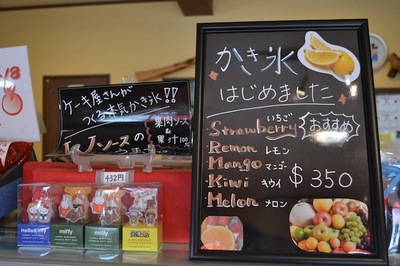 ケーキ屋さんが
つくる本気かき氷!!
果肉ソース
&
果汁100
ソースの
432円
Hello Kitty
miffy
miffy
かき氷
はじめました
いちご
Strawberry
おすすめ
Remon レモン
Mango マンゴー
Kiwi キウイ
$350
Melon メロン
/8